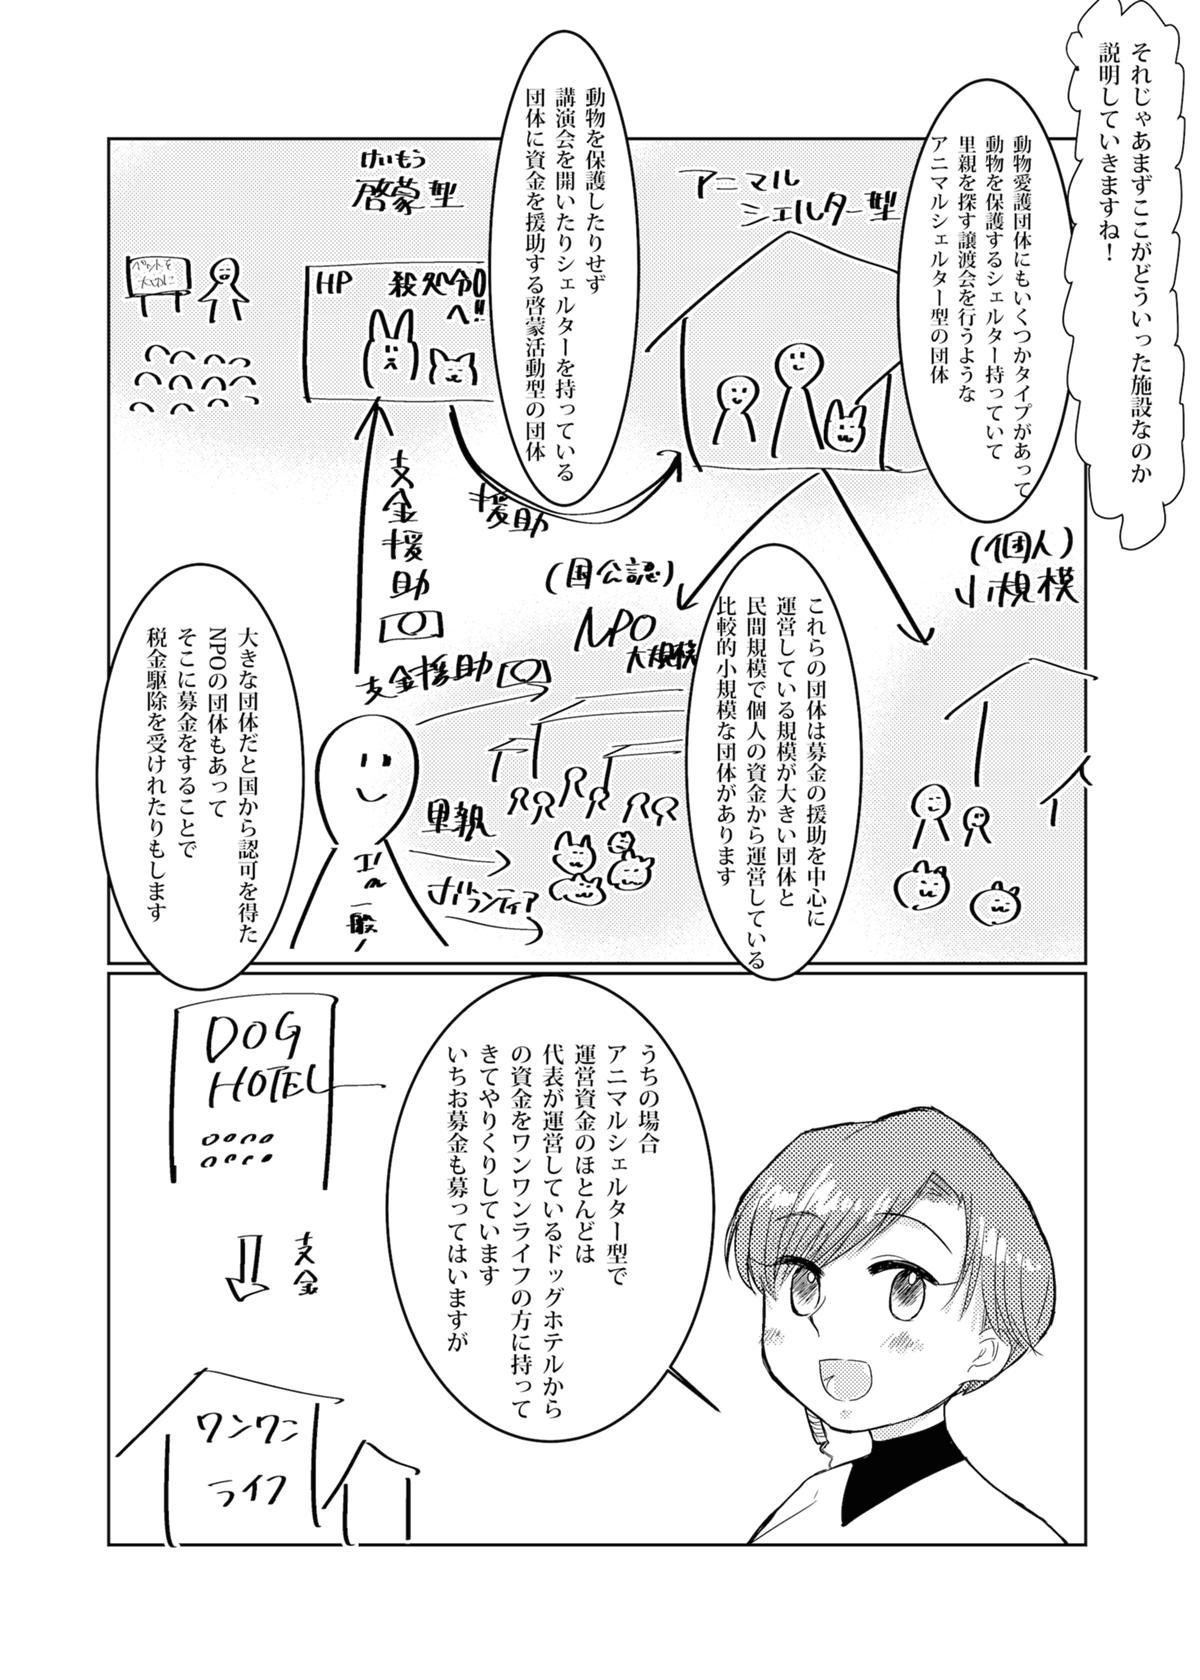 それじゃあまずここがどういった施設なのか
説明していきますね！
動物愛護団体にもいくつかタイプがあって
動物を保護するシェルター持っていて
里親を探す譲渡会を行うような
アニマルシェルター型の団体
アニマル
シェルター型
動物を保護したりせず
講演会を開いたりシェルターを持っている
団体に資金を援助する啓蒙活動型の団体
けいもう
啓蒙型
HP
殺処分0
へ!!
ペットを
大切に
援助
支金援助
(個人)
小規模
(国公認)
NPO
大規模
これらの団体は募金の援助を中心に
運営している規模が大きい団体と
民間規模で個人の資金から運営している
比較的小規模な団体があります
支金援助
里親
ボランティア
一般
大きな団体だと国から認可を得た
NPOの団体もあって
そこに募金をすることで
税金駆除を受けれたりもします
うちの場合
アニマルシェルター型で
運営資金のほとんどは
代表が運営しているドッグホテルから
の資金をワンワンライフの方に持って
きてやりくりしています
いちお募金も募ってはいますが
DOG
HOTEL
支金
ワンワン
ライフ